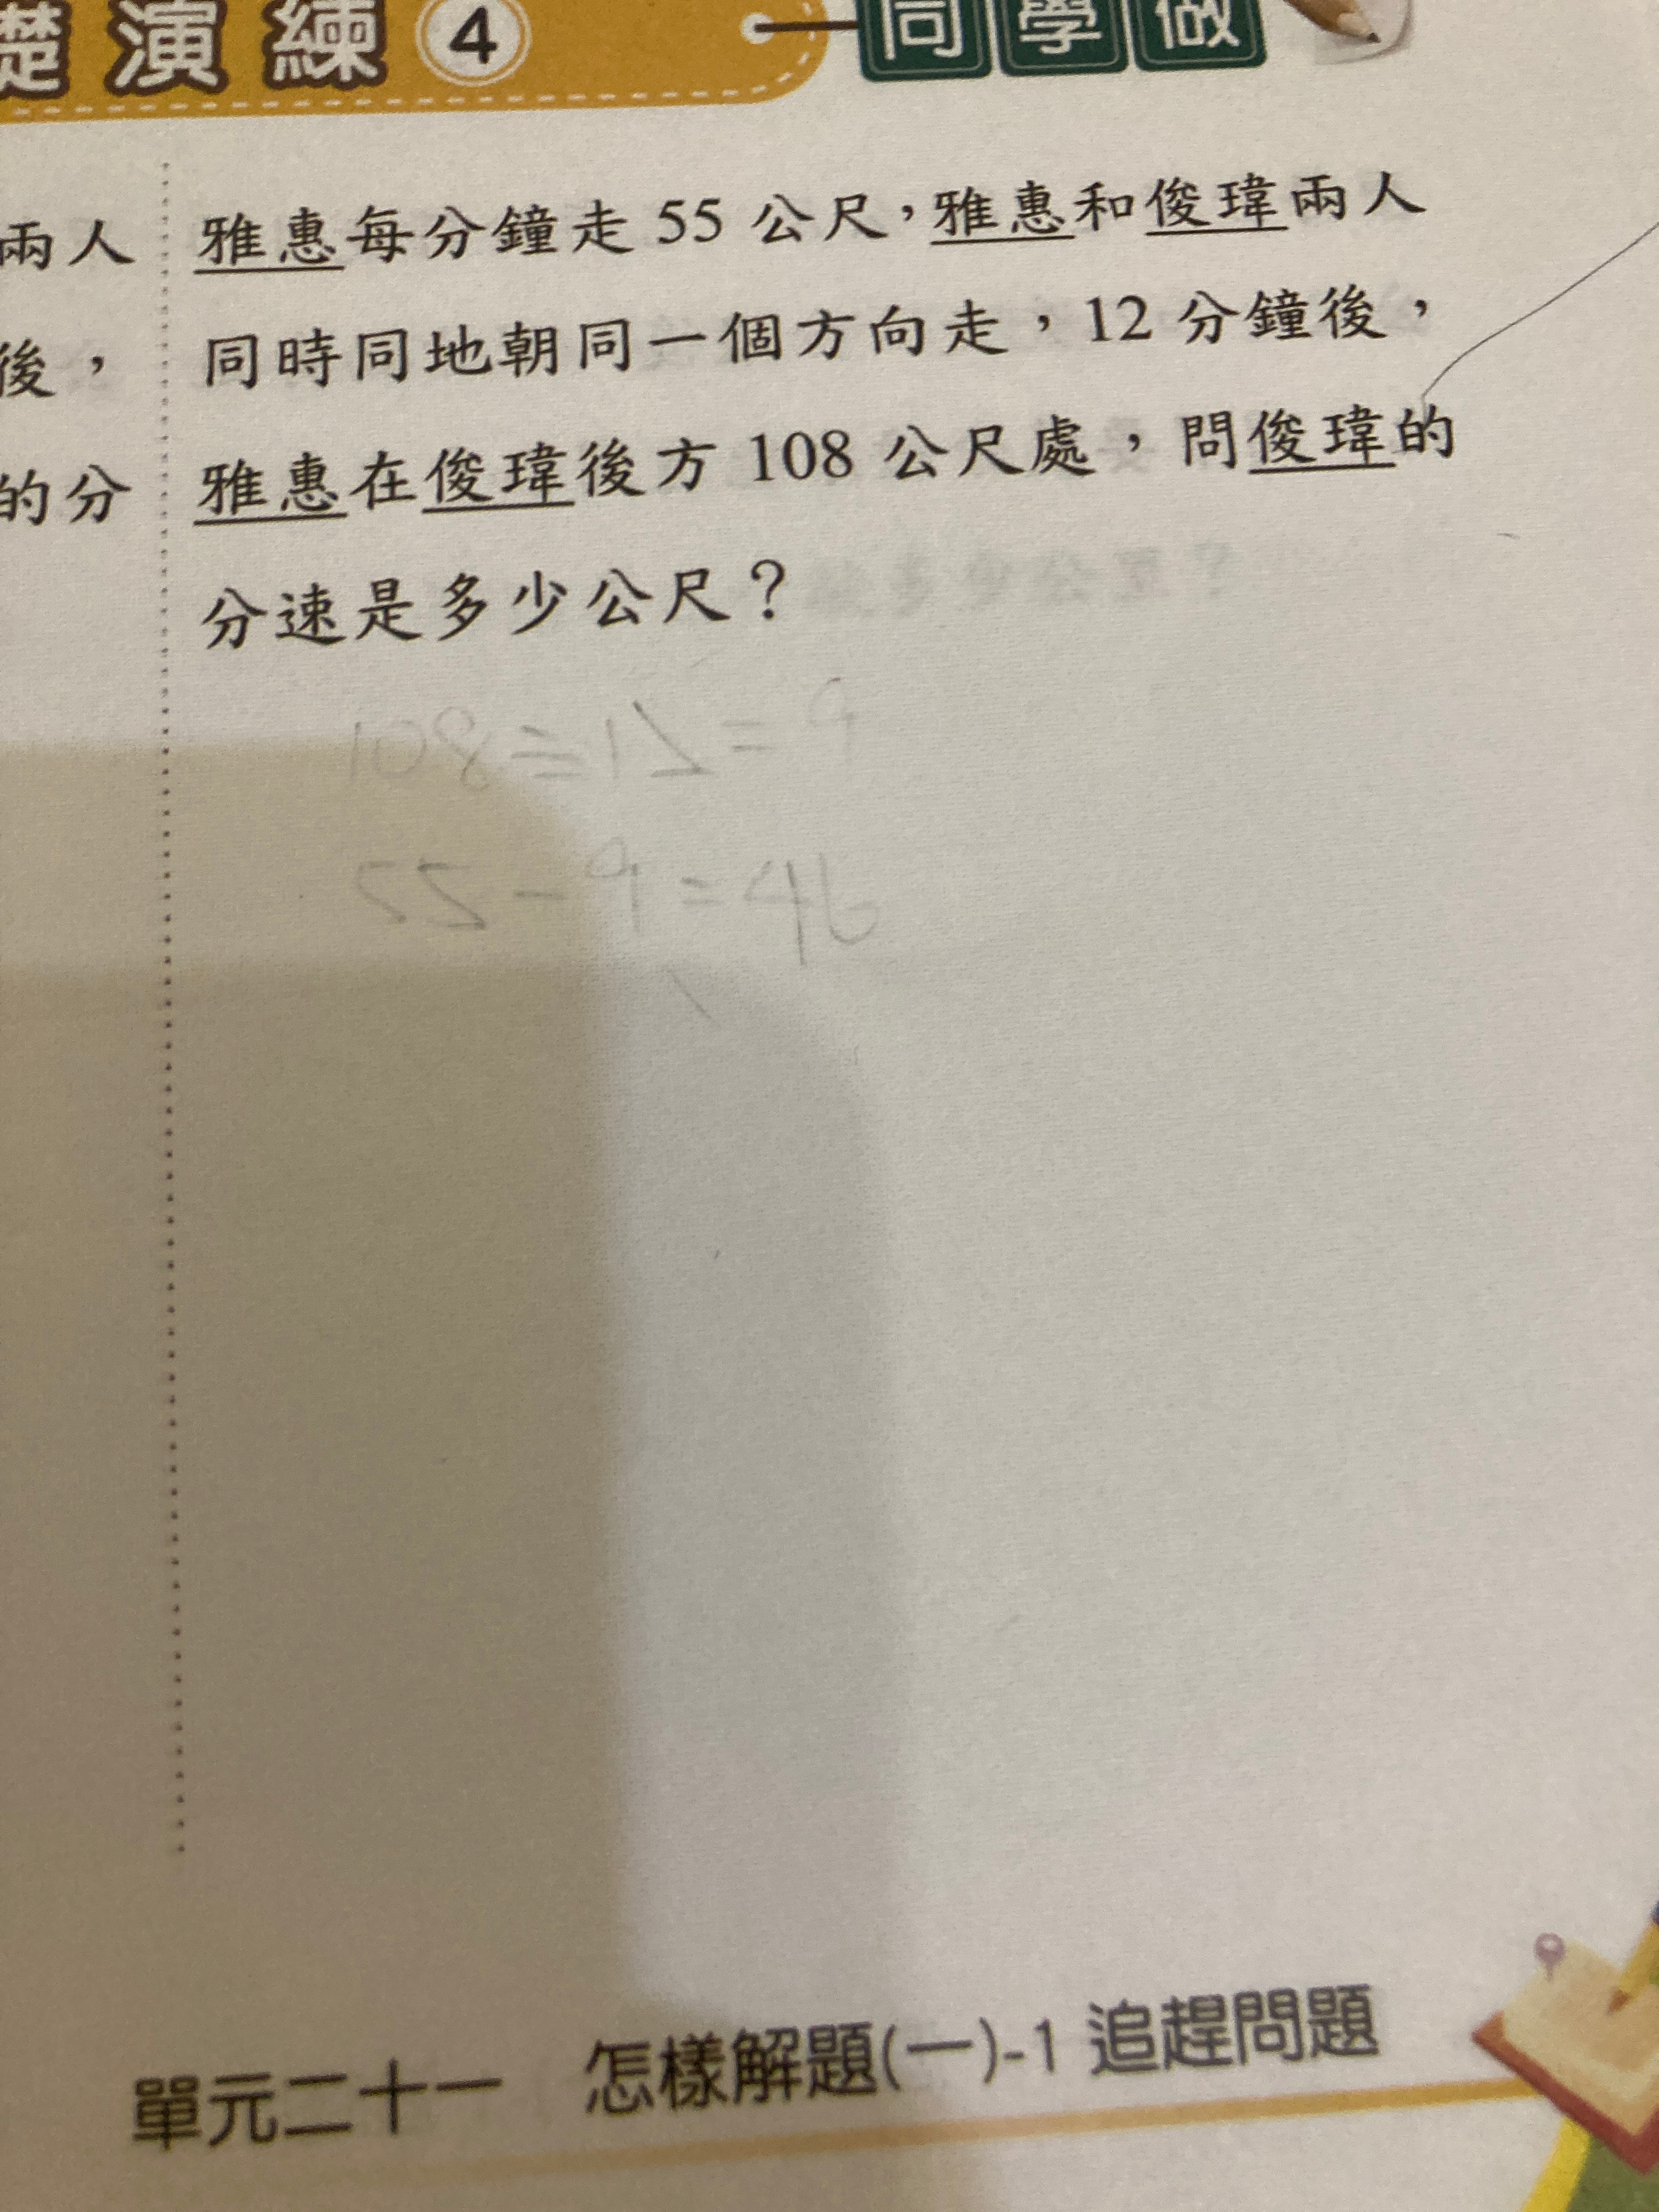 礎演練4 同學做
兩人
後，
的分
雅惠每分鐘走 55 公尺，雅惠和俊瑋兩人
同時同地朝同一個方向走，12 分鐘後，
雅惠在俊瑋後方 108 公尺處，問俊瑋的
分速是多少公尺？
單元二十一 怎樣解題(一)-1 追趕問題